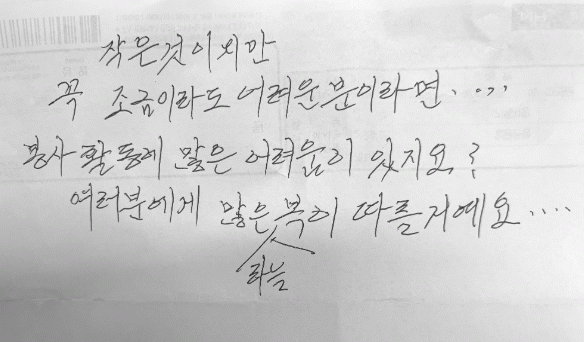 작은것이지만
꼭 조금이라도 어려운분이라면....
봉사활동에 많은 어려움이 있지요?
여러분에게 많은복이 따를거예요....
하늘